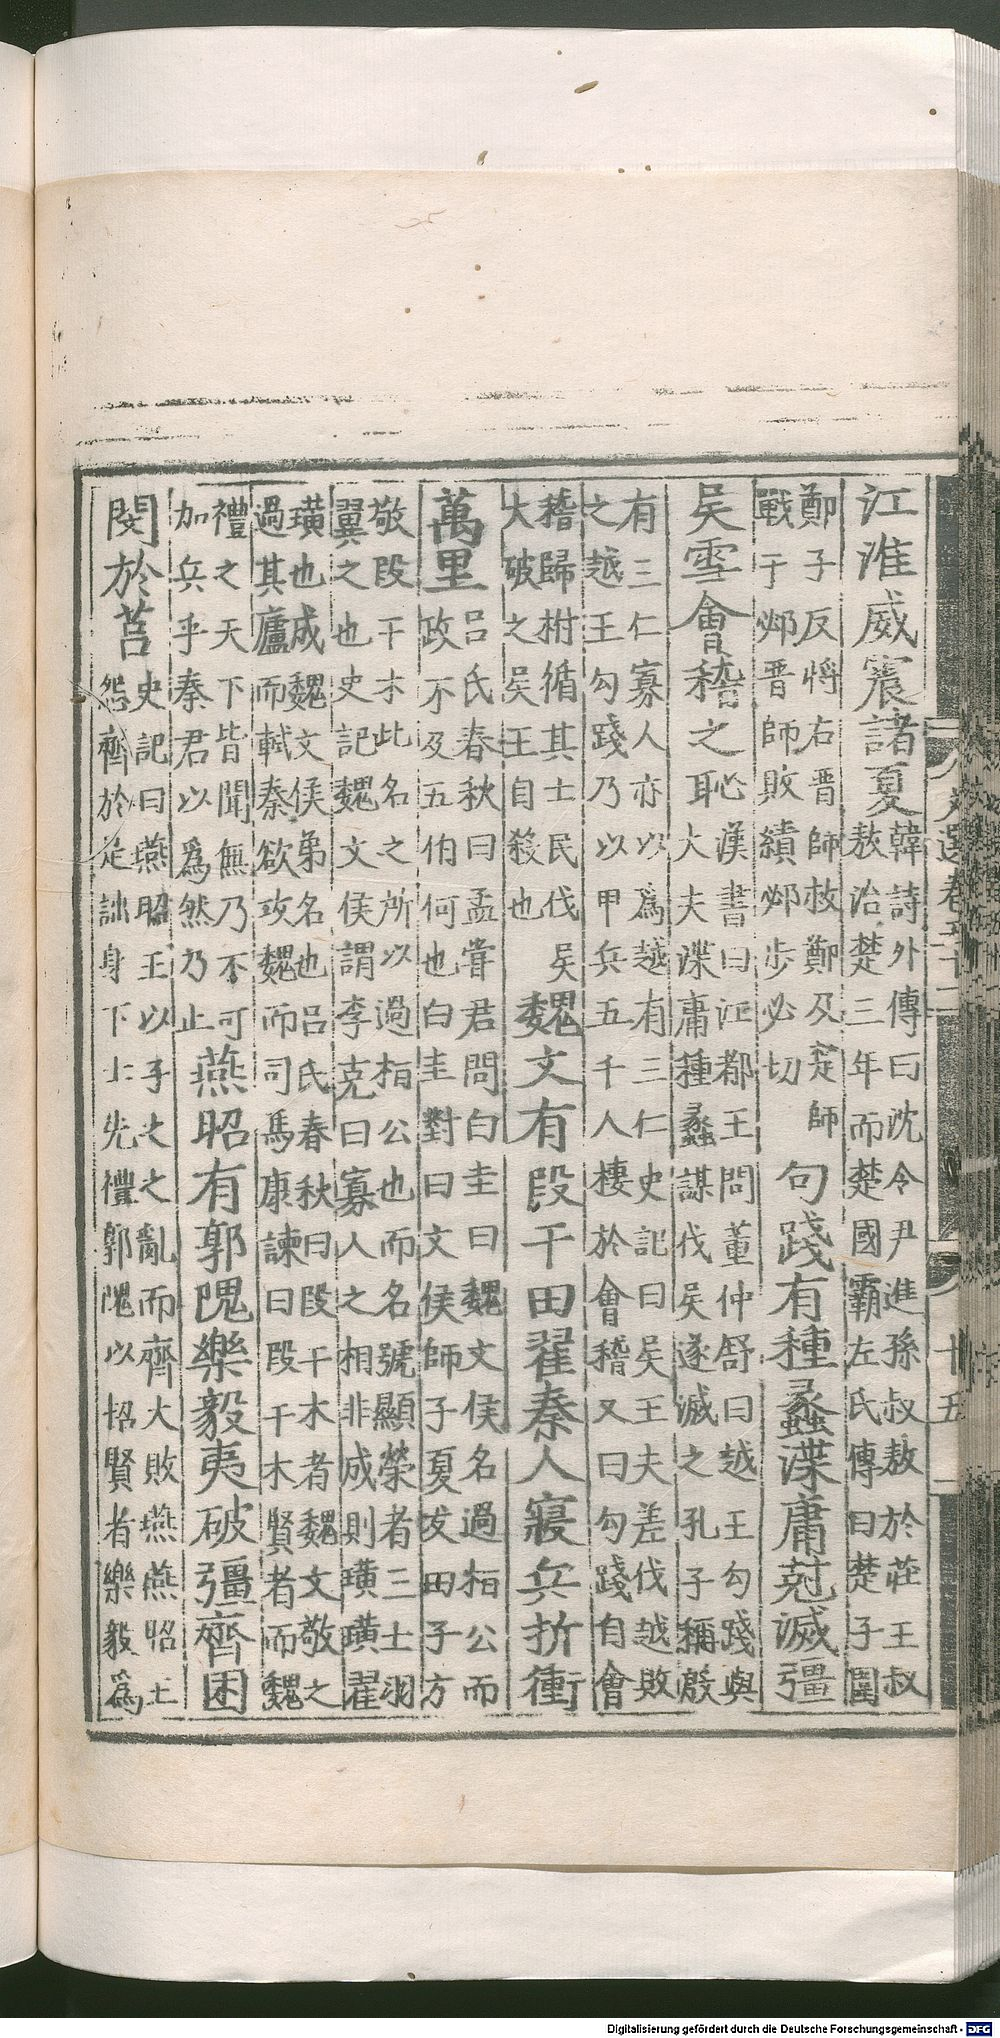 江淮威震諸夏韓詩外傳曰沈令尹進孫叔敖於莊王叔
敖治楚三年而楚國霸左氏傳曰楚子圍
鄭子反將右晉師救鄭及楚師
戰于邲晉師敗績邲步必切句踐有種蠡渫庸剋滅彊
吳雪會稽之恥漢書曰江都王問董仲舒曰越王勾踐與
大夫渫庸種蠡謀伐吳遂滅之孔子稱殷
有三仁寡人亦以爲越有三仁史記曰吳王夫差伐越敗
之越王勾踐乃以甲兵五千人棲於會稽又曰勾踐自會
稽歸拊循其士民伐吳
大破之吳王自殺也魏文有段干田翟秦人寢兵折衝
萬里呂氏春秋曰孟甞君問白圭曰魏文侯名過桓公而
政不及五伯何也白圭對曰文侯師子夏友田子方
敬段干木此名之所以過桓公也而名號顯榮者三士羽
翼之也史記魏文侯謂李克曰寡人之相非成則璜璜翟
璜也成魏文侯弟名也呂氏春秋曰段干木者魏文敬之
過其廬而軾秦欲攻魏而司馬康諫曰段干木賢者而魏
禮之天下皆聞無乃不可
加兵乎秦君以爲然乃止燕昭有郭隗樂毅夷破彊齊困
閔於莒史記曰燕昭王以子之之亂而齊大敗燕燕昭王
怨齊於是詘身下士先禮郭隗以招賢者樂毅爲
文選卷五十
廿五
Digitalisierung gefördert durch die Deutsche Forschungsgemeinschaft - DFG